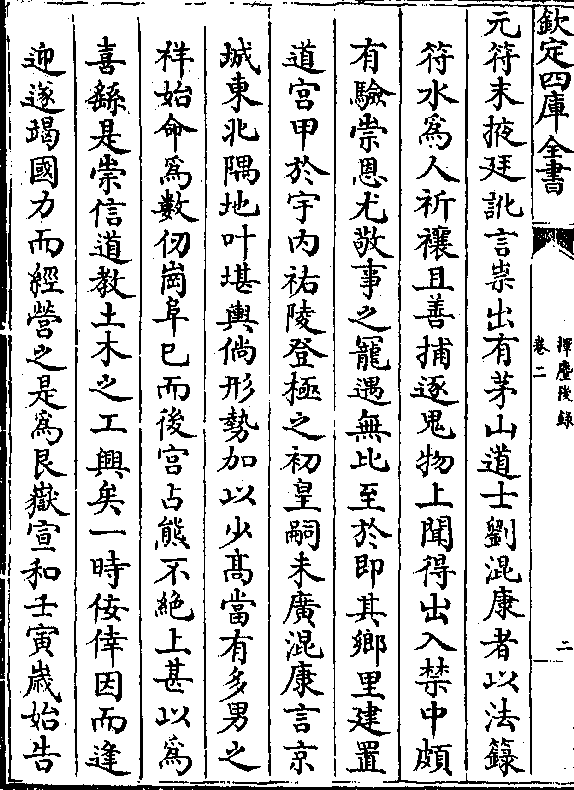 欽定四庫全書
揮麈後錄
卷二
二
元符末掖廷訛言祟出有茅山道士劉混康者以法籙
符水為人祈禳且善捕逐鬼物上聞得出入禁中頗
有驗崇恩尤敬事之寵遇無比至於即其鄉里建置
道宫甲於宇内祐陵登極之初皇嗣未廣混康言京
城東北隅地叶堪輿倘形勢加以少髙當有多男之
祥始命為數仭崗阜已而後宫占熊不絶上甚以為
喜繇是崇信道教土木之工興矣一時佞倖因而逢
迎遂竭國力而經營之是為艮嶽宣和壬寅歲始告